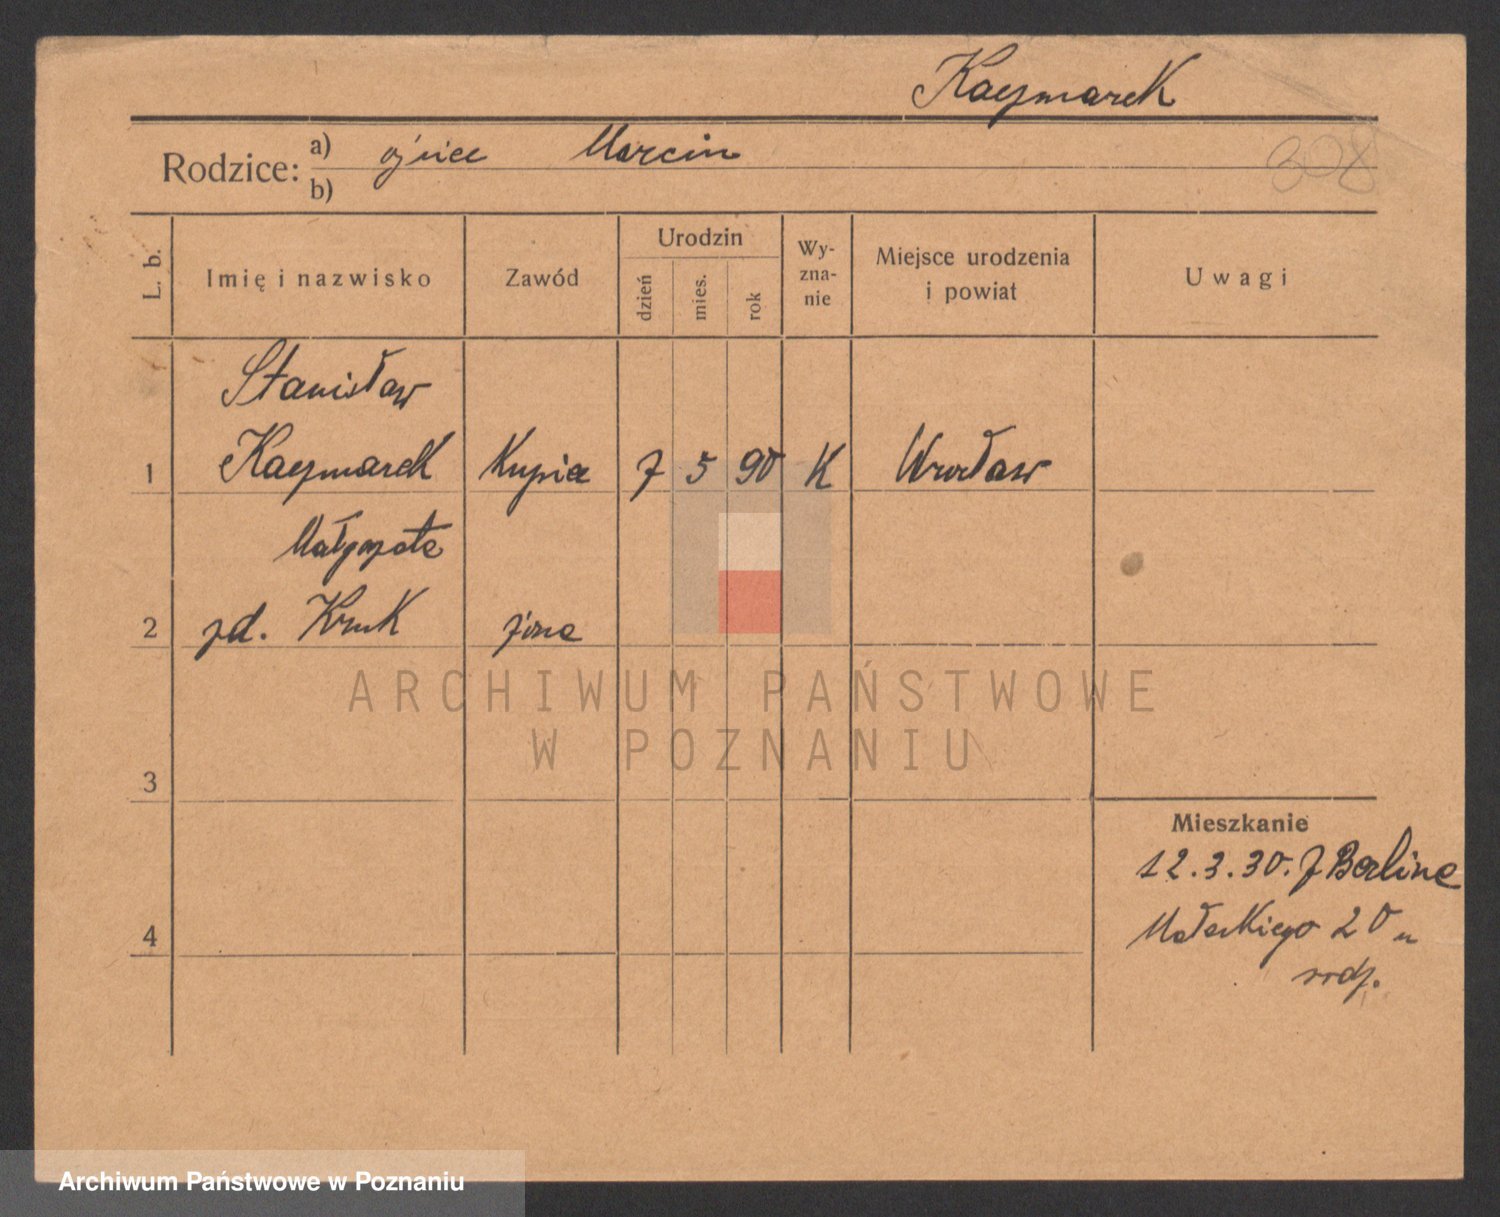 Kaczmarek
308
Rodzice: a) ojciec Marcin
b)
L. b.
Imię i nazwisko
Zawód
Urodzin
dzień
mies.
rok
Wy-
zna-
nie
Miejsce urodzenia
i powiat
Uwagi
Stanisław
1 Kaczmarek Kupiec 7 5 90 K Wrocław
Małgorzata
2 zd. Kruk żona
3
4
Mieszkanie
12.3.30. z Berlina
Małeckiego 20 u
rodz.
ARCHIWUM PAŃSTWOWE
W POZNANIU
Archiwum Państwowe w Poznaniu